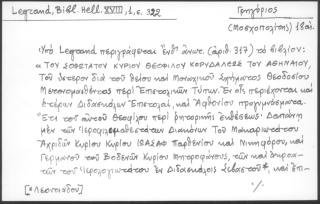 Legrand, Bibl. Hell. XVIII, 1, σ. 322
Γρηγόριος
(Μοσχοπολίτης) 18αι.
Ὑπὸ Legrand περιγράφεται (ἀριθ. 317) τὸ βιβλίον:
«ΤΟΥ ΣΟΦΩΤΑΤΟΥ ΚΥΡΙΟΥ ΘΕΟΦΙΛΟΥ ΚΟΡΥΔΑΛΕΩΣ ΤΟΥ ΑΘΗΝΑΙΟΥ,
τοῦ ὕστερον διὰ τοῦ θείου καὶ Μοναχικοῦ Σχήματος Θεοδοσίου
Μετονομασθέντος περὶ Ἐπιστολικῶν Τύπων. Ἐν οἷς περιέχονται καὶ
ἑτέρων Διδασκάλων Ἐπιστολαί, καὶ Ἀφθονίου προγυμνάσματα.
Ἔτι τοῦ αὐτοῦ Θεοφίλου περὶ ῥητορικῆς ἐκθέσεως. Δαπάνῃ
μὲν τῶν Ἱεροφιλομαθεστάτων Διακόνων Τοῦ Μακαριωτάτου
Ἀχριδῶν Κυρίου Κυρίου ΙΩΑΣΑΦ Παρθενίου καὶ Νικηφόρου, καὶ
Γερμανοῦ τοῦ Βοδενῶν Κυρίου Μητροφάνους, τῶν καὶ
τοῦ Ἱερολογιωτάτου ἐν Διδασκάλοις Σεβαστοῦ*, καὶ ἐπι-
[*Λεοντιάδου]
·/.